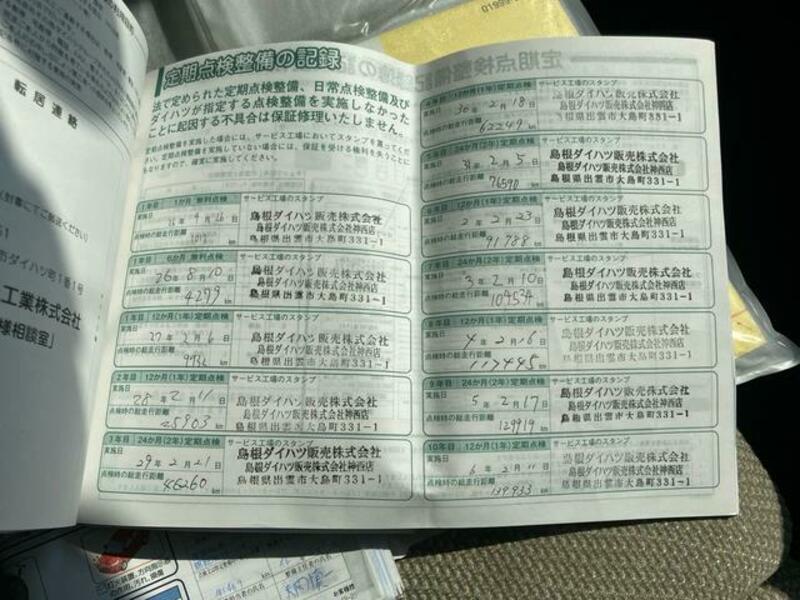 転居連絡
工業株式会社
様相談室」
定期点検整備の記録
法で定められた定期点検整備、日常点検整備及び
ダイハツが指定する点検整備を実施しなかった
ことに起因する不具合は保証修理いたしません。
定期点検整備を実施した場合には、サービス工場においてスタンプを貰ってくだ
さい。定期点検整備を実施していない場合には、保証を受ける権利を失うことに
もなりますので、確実に実施してください。
1年目 1か月 無料点検 サービス工場のスタンプ
実施日 26年 4月 16日
点検時の総走行距離 km
島根ダイハツ販売株式会社
島根ダイハツ販売株式会社神西店
島根県出雲市大島町331-1
1年目 6か月 無料点検 サービス工場のスタンプ
実施日 26年 8月 10日
点検時の総走行距離 4299 km
島根ダイハツ販売株式会社
島根ダイハツ販売株式会社神西店
島根県出雲市大島町331-1
1年目 12か月(1年)定期点検 サービス工場のスタンプ
実施日 27年 2月 6日
点検時の総走行距離 km
島根ダイハツ販売株式会社
島根ダイハツ販売株式会社神西店
島根県出雲市大島町331-1
2年目 12か月(1年)定期点検 サービス工場のスタンプ
実施日 28年 2月 11日
点検時の総走行距離 25903 km
島根ダイハツ販売株式会社
島根ダイハツ販売株式会社神西店
島根県出雲市大島町331-1
3年目 24か月(2年)定期点検 サービス工場のスタンプ
実施日 29年 2月 21日
点検時の総走行距離 46260 km
島根ダイハツ販売株式会社
島根ダイハツ販売株式会社神西店
島根県出雲市大島町331-1
4年目 12か月(1年)定期点検 サービス工場のスタンプ
実施日 30年 2月 18日
点検時の総走行距離 62249 km
島根ダイハツ販売株式会社
島根ダイハツ販売株式会社神西店
島根県出雲市大島町331-1
5年目 24か月(2年)定期点検 サービス工場のスタンプ
実施日 31年 2月 5日
点検時の総走行距離 76590 km
島根ダイハツ販売株式会社
島根ダイハツ販売株式会社神西店
島根県出雲市大島町331-1
6年目 12か月(1年)定期点検 サービス工場のスタンプ
実施日 2年 2月 23日
点検時の総走行距離 91788 km
島根ダイハツ販売株式会社
島根ダイハツ販売株式会社神西店
島根県出雲市大島町331-1
7年目 24か月(2年)定期点検 サービス工場のスタンプ
実施日 3年 2月 10日
点検時の総走行距離 104534 km
島根ダイハツ販売株式会社
島根ダイハツ販売株式会社神西店
島根県出雲市大島町331-1
8年目 12か月(1年)定期点検 サービス工場のスタンプ
実施日 4年 2月 16日
点検時の総走行距離 117445 km
島根ダイハツ販売株式会社
島根ダイハツ販売株式会社神西店
島根県出雲市大島町331-1
9年目 24か月(2年)定期点検 サービス工場のスタンプ
実施日 5年 2月 17日
点検時の総走行距離 129919 km
島根ダイハツ販売株式会社
島根ダイハツ販売株式会社神西店
島根県出雲市大島町331-1
10年目 12か月(1年)定期点検 サービス工場のスタンプ
実施日 6年 2月 11日
点検時の総走行距離 139933 km
島根ダイハツ販売株式会社
島根ダイハツ販売株式会社神西店
島根県出雲市大島町331-1